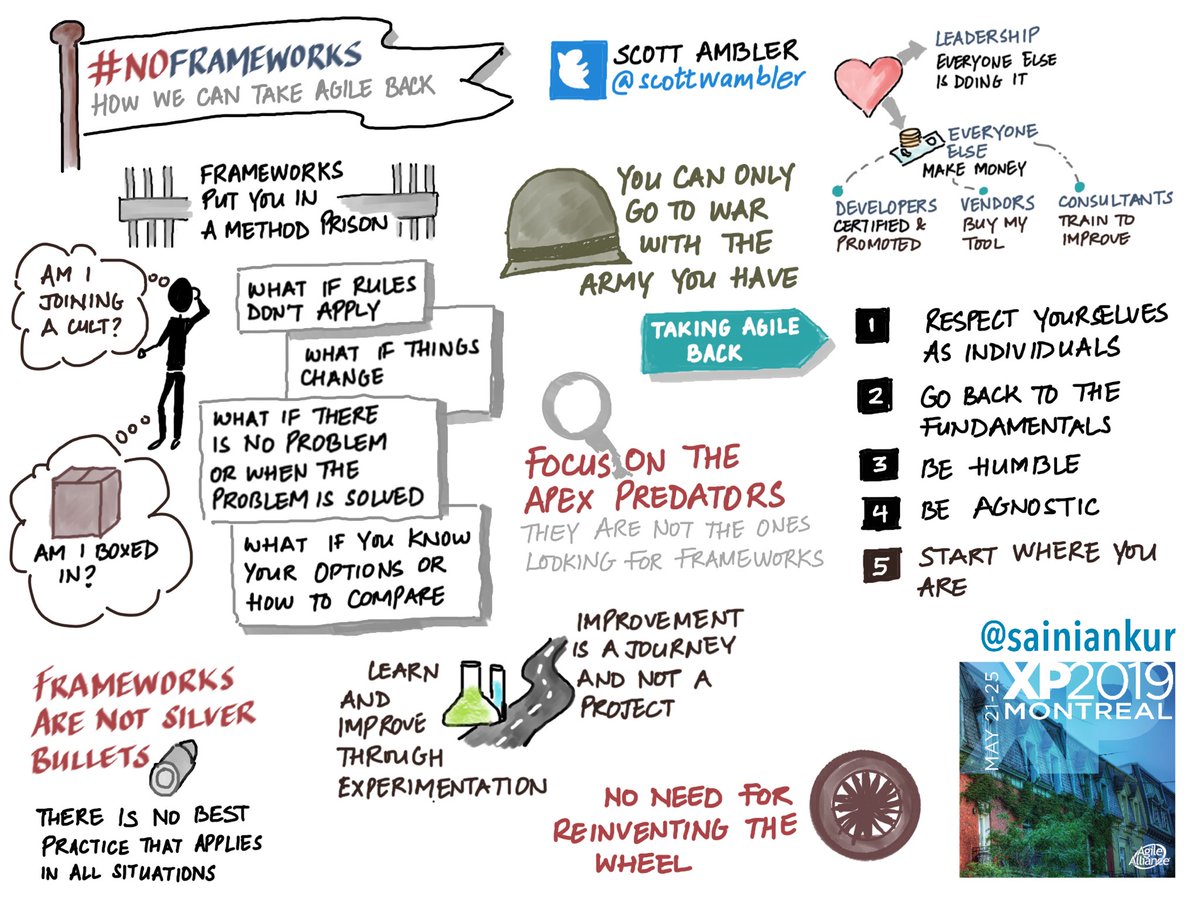 #NOFRAMEWORKS
HOW WE CAN TAKE AGILE BACK
SCOTT AMBLER
@scottwambler
LEADERSHIP
EVERYONE ELSE
IS DOING IT
EVERYONE
ELSE
MAKE MONEY
DEVELOPERS
CERTIFIED &
PROMOTED
VENDORS
BUY MY
TOOL
CONSULTANTS
TRAIN TO
IMPROVE
FRAMEWORKS
PUT YOU IN
A METHOD PRISON
YOU CAN ONLY
GO TO WAR
WITH THE
ARMY YOU HAVE
AM I
JOINING
A CULT?
AM I BOXED
IN?
WHAT IF RULES
DON'T APPLY
WHAT IF THINGS
CHANGE
WHAT IF THERE
IS NO PROBLEM
OR WHEN THE
PROBLEM IS SOLVED
WHAT IF YOU KNOW
YOUR OPTIONS OR
HOW TO COMPARE
TAKING AGILE
BACK
1 RESPECT YOURSELVES
AS INDIVIDUALS
2 GO BACK TO THE
FUNDAMENTALS
3 BE HUMBLE
4 BE AGNOSTIC
5 START WHERE YOU
ARE
FOCUS ON THE
APEX PREDATORS
THEY ARE NOT THE ONES
LOOKING FOR FRAMEWORKS
FRAMEWORKS
ARE NOT SILVER
BULLETS
THERE IS NO BEST
PRACTICE THAT APPLIES
IN ALL SITUATIONS
LEARN
AND
IMPROVE
THROUGH
EXPERIMENTATION
IMPROVEMENT
IS A JOURNEY
AND NOT A
PROJECT
NO NEED FOR
REINVENTING THE
WHEEL
@sainiankur
MAY 21-25
XP2019
MONTREAL
Agile
Alliance